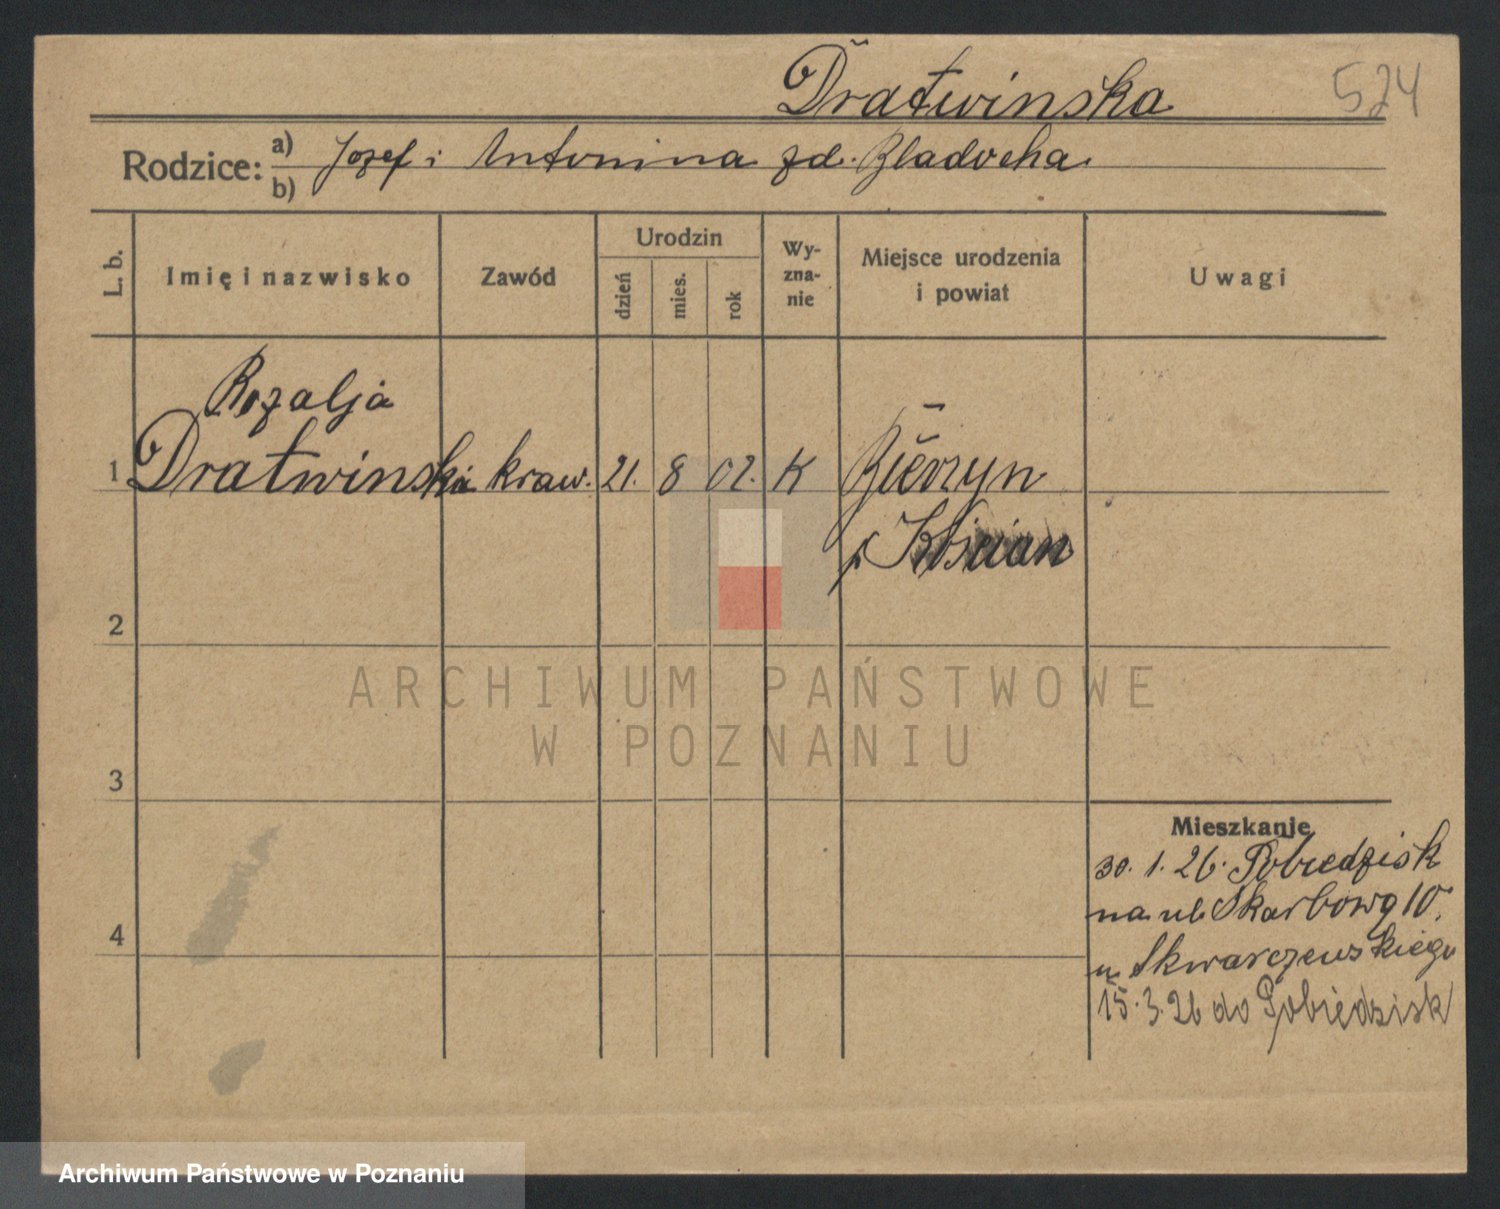 Dratwinska 524
Rodzice: a) Jozef i Antonina zd. Bladocha
b)
L. b. Imię i nazwisko Zawód Urodzin dzień mies. rok Wyznanie Miejsce urodzenia i powiat Uwagi
Rozalja
1 Dratwinska kraw. 21. 8 02. K Bieżyn
p Kościan
2
ARCHIWUM PAŃSTWOWE
W POZNANIU
3
Mieszkanie
30. 1. 26. Pobiedzisk
4 na ul. Skarbową 10.
u. Skwarczewskiego
15. 3. 26 do Pobiedzisk
Archiwum Państwowe w Poznaniu